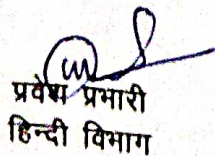 प्रवेश प्रभारी
हिन्दी विभाग